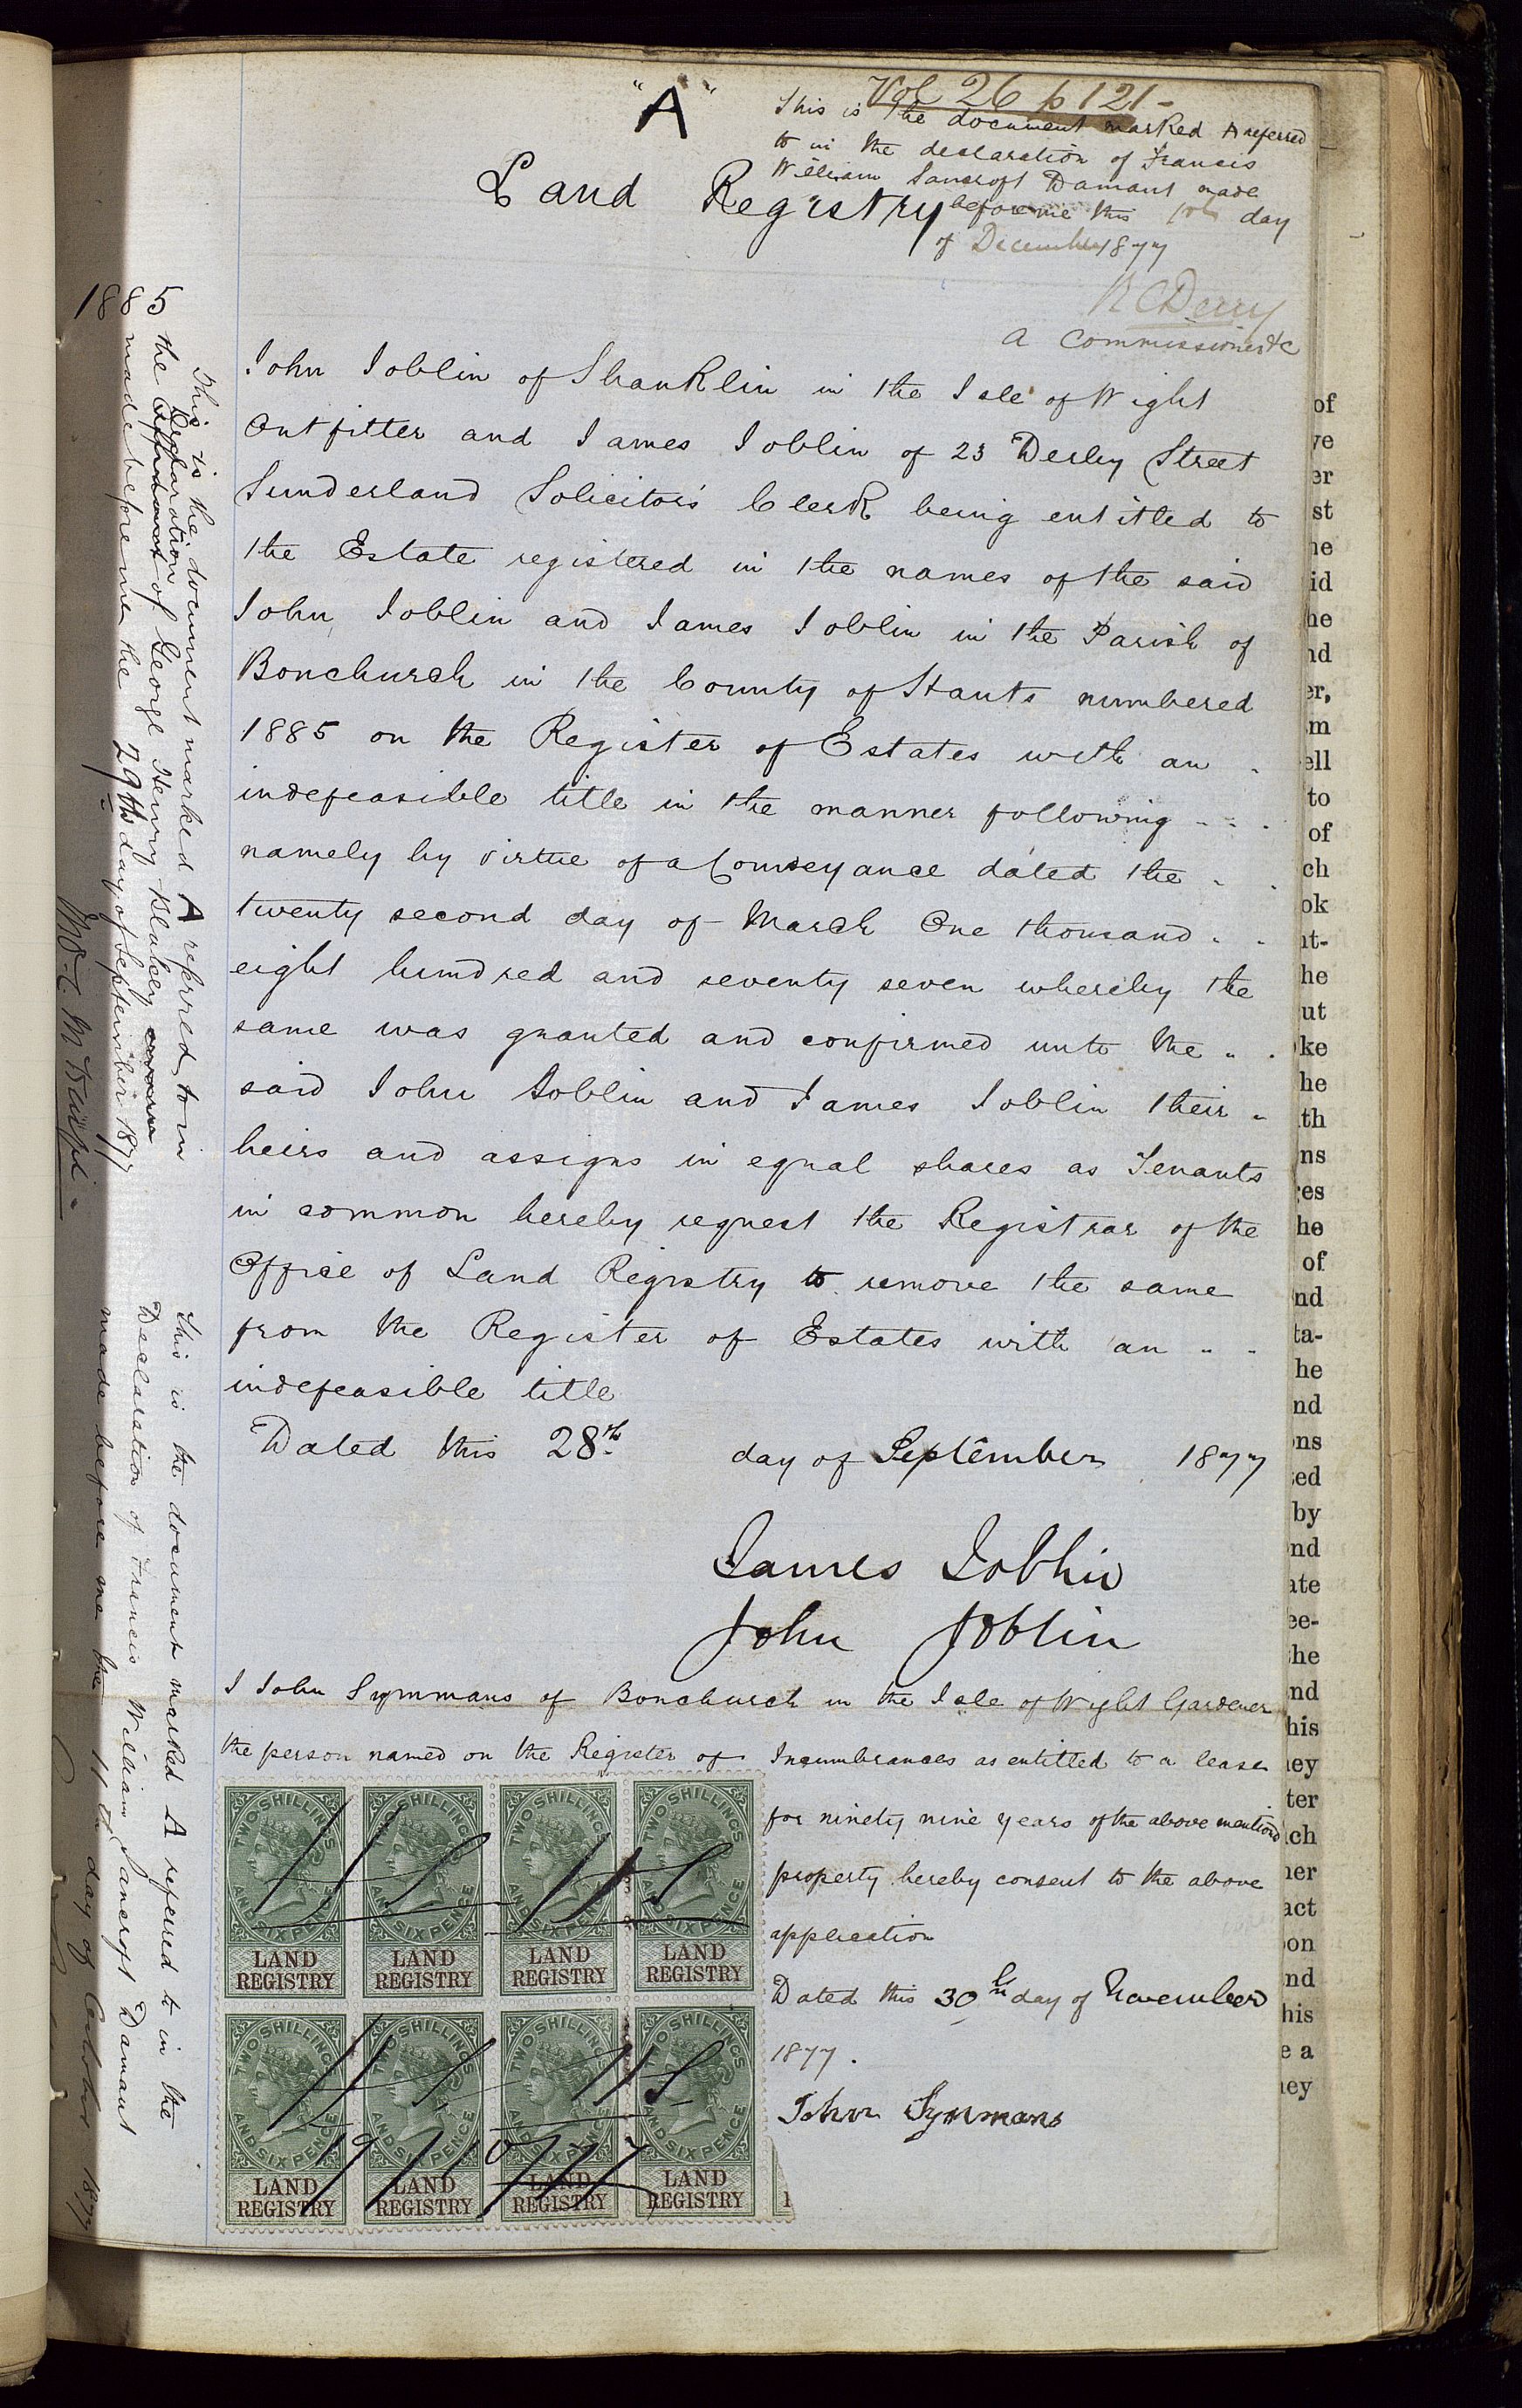 "A"
Vol 26 p 121 -
This is the document marked A referred
to in the declaration of Francis
William Sancroft Damant made
before me this 10th day
of December 1877
Land Registry
R C Derry
A Commissioner &c
John Joblin of Shanklin in the Isle of Wight
Outfitter and James Joblin of 23 Derby Street
Sunderland Solicitor's Clerk being entitled to
the Estate registered in the names of the said
John Joblin and James Joblin in the Parish of
Bonchurch in the County of Hants numbered
1885 on the Register of Estates with an
indefeasible title in the manner following
namely by virtue of a Conveyance dated the
twenty second day of March One thousand
eight hundred and seventy seven whereby the
same was granted and confirmed unto the
said John Joblin and James Joblin their
heirs and assigns in equal shares as Tenants
in common hereby request the Registrar of the
Office of Land Registry to remove the same
from the Register of Estates with an
indefeasible title
Dated this 28th day of September 1877
James Joblin
John Joblin
I John Symmans of Bonchurch in the Isle of Wight Gardener
the person named on the Register of Incumbrances as entitled to a lease
for ninety nine years of the above mentiond
property hereby consent to the above
application
Dated this 30th day of November
1877.
John Symmans
1885
This is the document marked A referred to in
the Affidavit Declaration of George Henry sworn
made before me the 29th day of September 1877
This is the document marked A referred to in the
Declaration of Francis William Sancroft Damant
made before me the 11th day of October 1877
TWO SHILLINGS AND SIXPENCE
LAND REGISTRY
TWO SHILLINGS AND SIXPENCE
LAND REGISTRY
TWO SHILLINGS AND SIXPENCE
LAND REGISTRY
TWO SHILLINGS AND SIXPENCE
LAND REGISTRY
TWO SHILLINGS AND SIXPENCE
LAND REGISTRY
TWO SHILLINGS AND SIXPENCE
LAND REGISTRY
TWO SHILLINGS AND SIXPENCE
LAND REGISTRY
TWO SHILLINGS AND SIXPENCE
LAND REGISTRY